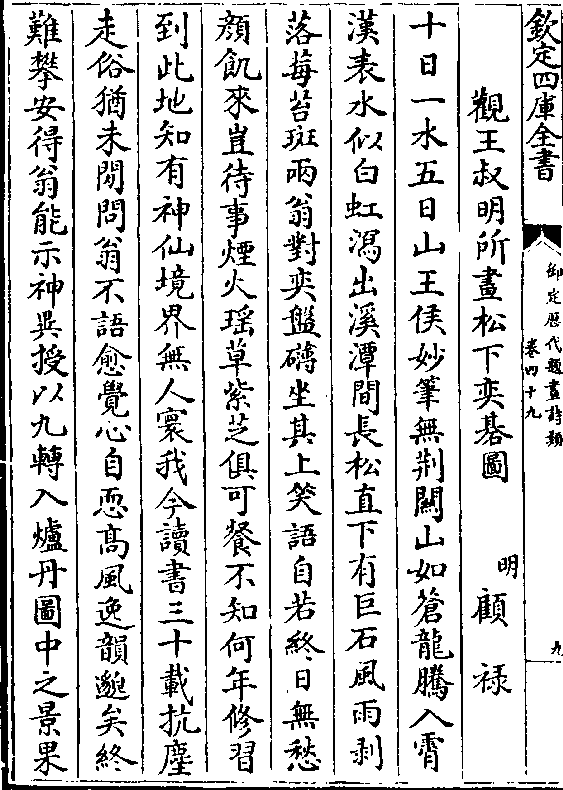 欽定四庫全書
御定歷代題畫詩類
卷四十九
九
觀王叔明所畫松下奕棊圖
明 顧祿
十日一水五日山王侯妙筆無荆關山如蒼龍騰入霄
漢表水似白虹瀉出溪潭間長松直下有巨石風雨剥
落莓苔斑兩翁對奕盤礴坐其上笑語自若終日無愁
顔飢來豈待事煙火瑶草紫芝俱可餐不知何年修習
到此地知有神仙境界無人寰我今讀書三十載抗塵
走俗猶未閒問翁不語愈覺心自恧髙風逸韻邈矣終
難攀安得翁能示神異授以九轉入爐丹圖中之景果